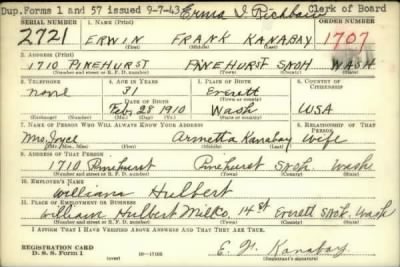 Dup. Forms 1 and 57 issued 9-7-43 Erma I. Clerk of Board
SERIAL NUMBER 1. NAME (Print) ORDER NUMBER
2721 ERWIN FRANK KANABAY 1707
(First) (Middle) (Last)
2. ADDRESS (Print)
1710 PINEHURST PINEHURST SNOH WASH
(Number and street or R. F. D. number) (Town) (County) (State)
3. TELEPHONE 4. AGE IN YEARS 5. PLACE OF BIRTH 6. COUNTRY OF CITIZENSHIP
none 31 Everett
DATE OF BIRTH (Town or county)
Feb 28 1910 Wash USA
(Mo.) (Day) (Yr.) (State or country)
7. NAME OF PERSON WHO WILL ALWAYS KNOW YOUR ADDRESS 8. RELATIONSHIP OF THAT PERSON
Mrs Joyce Armetta Kanabay Wife
(Mr., Mrs., Miss) (First) (Middle) (Last)
9. ADDRESS OF THAT PERSON
1710 Pinehurst Pinehurst Snoh. Wash
(Number and street or R. F. D. number) (Town) (County) (State)
10. EMPLOYER'S NAME
William Hulbert
11. PLACE OF EMPLOYMENT OR BUSINESS
William Hulbert Mill Co, 14 st Everett Snoh. Wash
(Number and street or R. F. D. number) (Town) (County) (State)
I AFFIRM THAT I HAVE VERIFIED ABOVE ANSWERS AND THAT THEY ARE TRUE.
REGISTRATION CARD
D. S. S. Form 1 (over) 16-17105 E. F. Kanabay